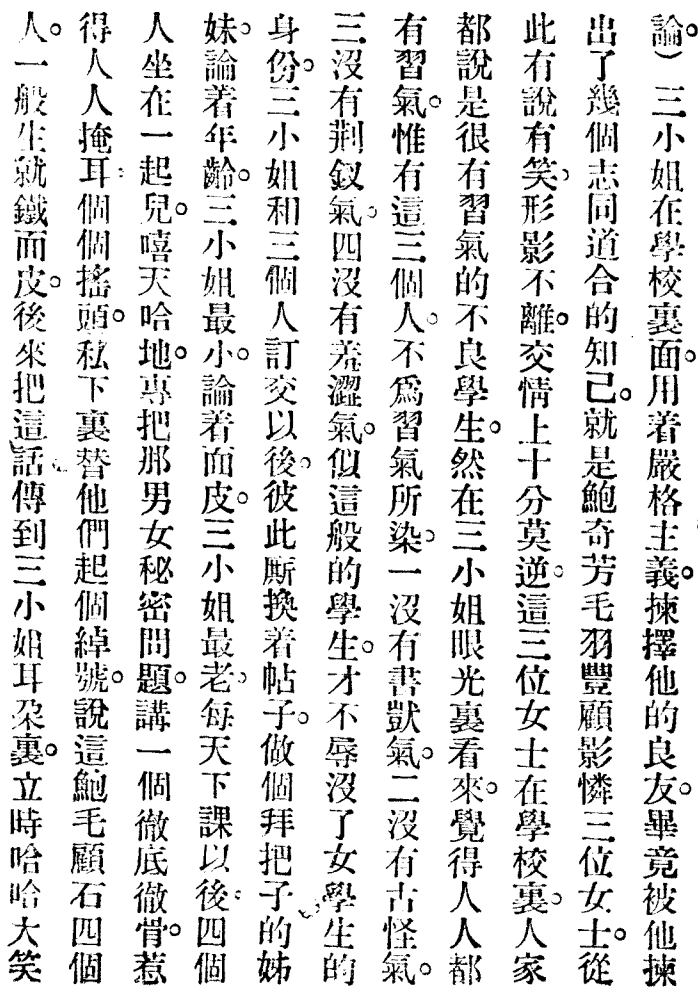 論。）三小姐在學校裏面。用着嚴格主義。揀擇他的良友。畢竟被他揀
出了幾個志同道合的知己。就是鮑奇芳毛羽豐顧影憐三位女士。從
此有說有笑。形影不離。交情上十分莫逆。這三位女士在學校裏。人家
都說是很有習氣的不良學生。然在三小姐眼光裏看來。覺得人人都
有習氣。惟有這三個人。不爲習氣所染。一沒有書獃氣。二沒有古怪氣。
三沒有荆釵氣。四沒有羞澀氣。似這般的學生。才不辱沒了女學生的
身份。三小姐和三個人訂交以後。彼此厮換着帖子。做個拜把子的姊
妹。論着年齡。三小姐最小。論着面皮。三小姐最老。每天下課以後。四個
人坐在一起兒。嘻天哈地。專把那男女秘密問題。講一個徹底徹骨。惹
得人人掩耳。個個搖頭。私下裏替他們起個綽號。說這鮑毛顧石四個
人。一般生就鐵面皮。後來把這話傳到三小姐耳朶裏。立時哈哈大笑